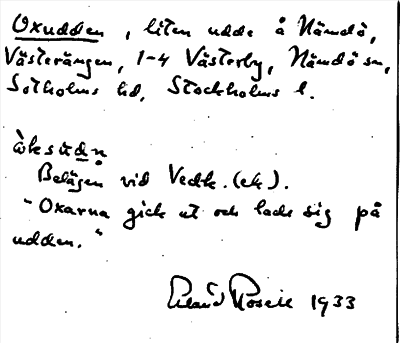 Oxudden, liten udde å Nämdö,
Västerängen, 1-4 Västerby, Nämdö sn,
Sotholms hd, Stockholms l.
Belägen vid Vedk. (ek).
"Oxarna gick ut och lade sig på
udden."
Erland Rosell 1933